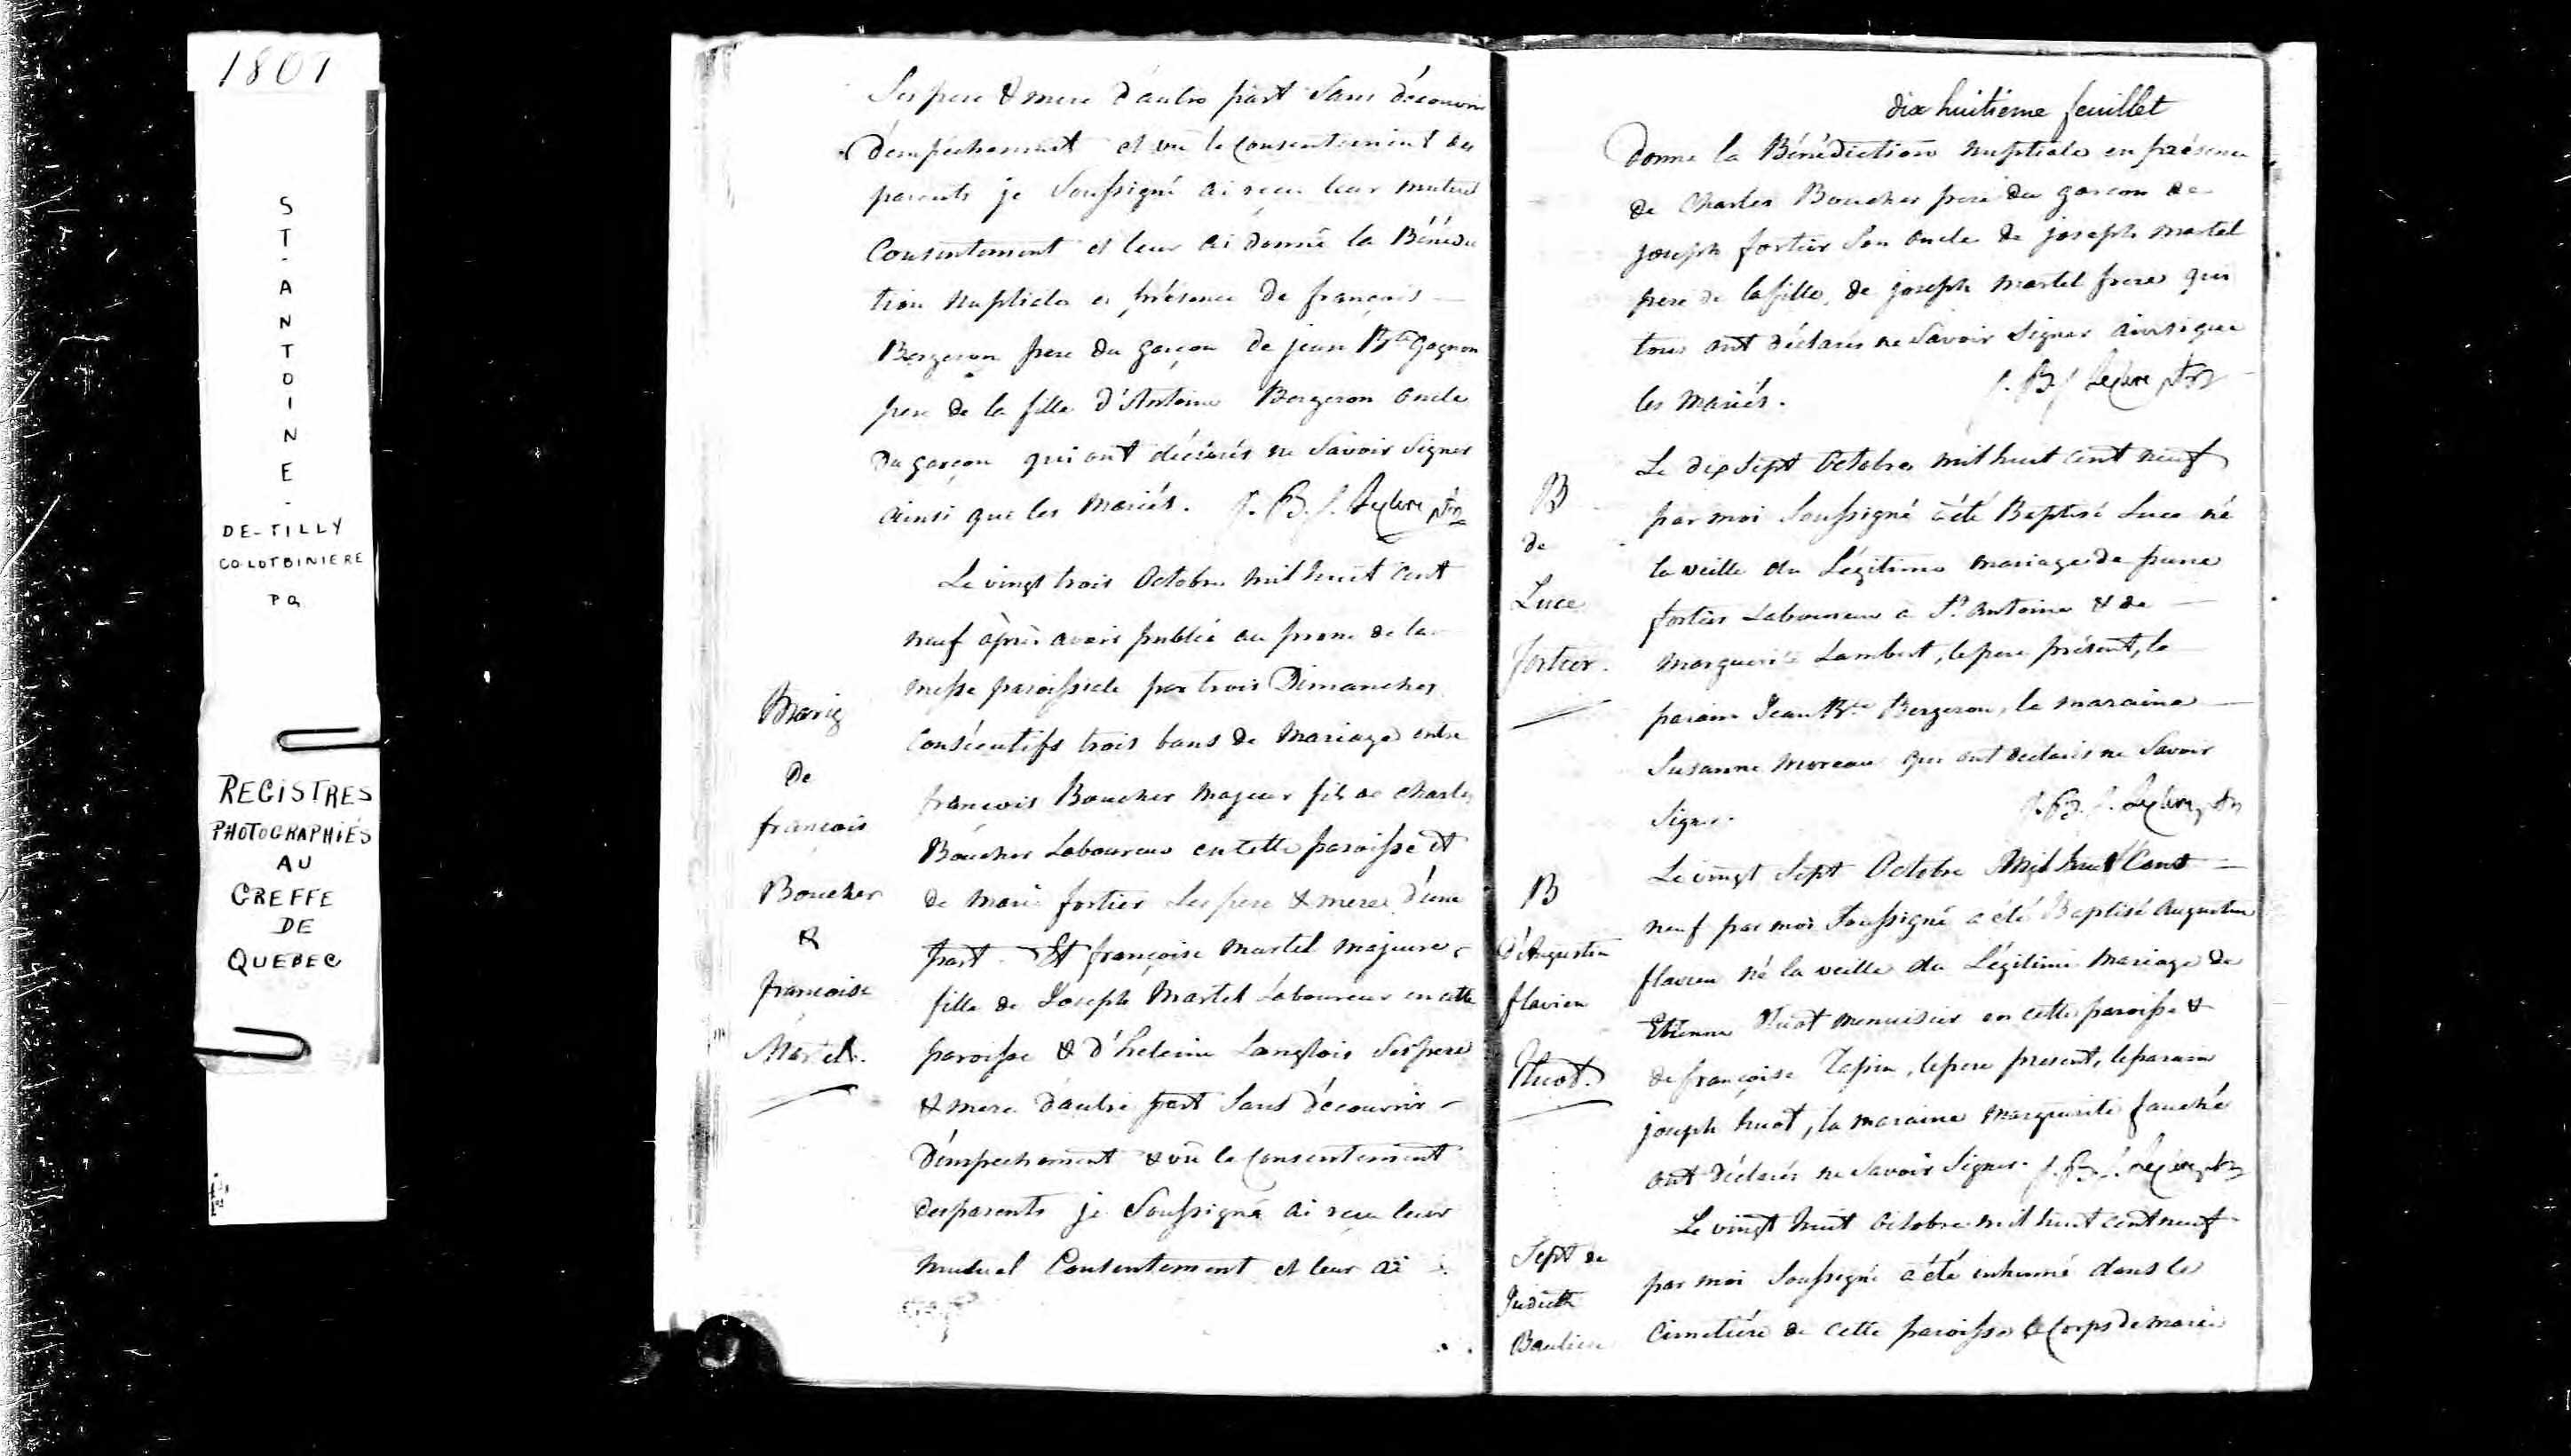 1809
ST-ANTOINE-
DE-TILLY
CO-LOTBINIERE
PQ
REGISTRES
PHOTOGRAPHIÉS
AU
GREFFE
DE
QUEBEC
Ses pere & mere d'autre part Sans découvrir
d'empêchement et vu le Consentement des
parents je Soussigné ai recu leur mutuel
Consentement et leur ai donné la Bénédic
tion Nuptiale en présence de françois
Bergeron pere du garçon de jean Bte Gagnon
pere de la fille d'Antoine Bergeron oncle
du garçon qui ont déclarés ne Savoir Signer
ainsi que les Mariés. J. B. J. Leclerc ptre
Le vingt trois Octobre mil huit Cent
neuf après avoir publié au prone de la
messe paroissiale par trois Dimanches
Consécutifs trois bans de Mariage entre
françois Boucher Majeur fils de Charles
Boucher Laboureur en cette paroisse et
de Marie fortier Ses pere & mere d'une
part - Et françoise Martel Majeure
fille de Joseph Martel Laboureur en cette
paroisse & d'heleine Langlois Ses pere
& mere d'autre part Sans découvrir
d'empechement & vu le Consentement
des parents je Soussigné ai recu leur
Mutuel Consentement et leur ai
Marig
de
françois
Boucher
&
françoise
Martel.
dix huitième feuillet
donné la Bénédiction Nuptiale en présence
de Charles Boucher pere du garcon de
joseph fortier Son oncle de joseph Martel
pere de la fille, de joseph Martel frere qui
tous ont déclarés ne Savoir Signer ainsi que
les Mariés. J. B. J. Leclerc ptre
B
de
Luce
fortier.
Le dix Sept Octobre mil huit cent neuf
par moi Soussigné a été Baptisé Luce né
la veille du Légitime mariage de
fortier Laboureur à St Antoine & de
Marguerite Lambert, le pere présent, le
parain Jean Bte Bergeron, la maraine
Susanne Moreau qui ont declarés ne Savoir
Signer. J. B. J. Leclerc ptre
B
d'Augustin
flavien
Huot.
Le vingt Sept Octobre Mil huit Cent
neuf par moi Soussigné a été Baptisé Augustin
flavien né la veille du Légitime Mariage de
Etienne Huot menuisier en cette paroisse &
de françoise Lapin, le pere present, le parain
joseph huot, la maraine Marguerite fauché
ont déclarés ne Savoir Signer. J. B. J. Leclerc ptre
Sept de
Judith
Baulieu
Le vingt huit Octobre mil huit cent neuf
par moi Soussigné a été inhumé dans le
Cimetière de cette paroisse le Corps de marie